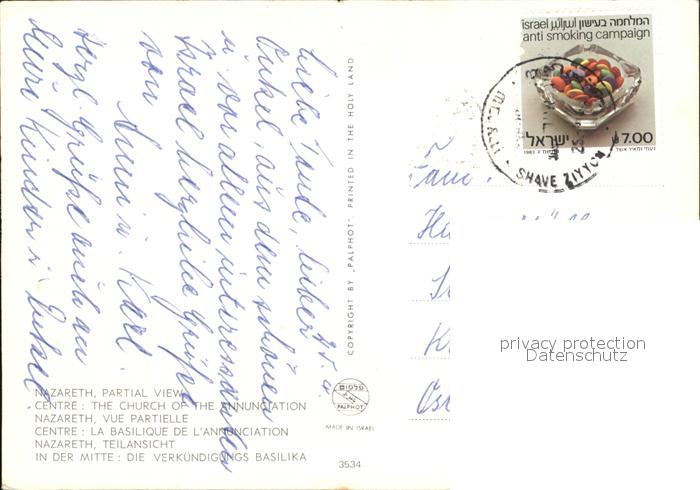 Liebe Tante, lieber
Onkel, aus dem schönen
u. vor allem interessanten
Israel herzliche Grüße
von
Anni u. Karl.
Herzl. Grüße auch an
Eure Kinder u. Enkel.
NAZARETH, PARTIAL VIEW
CENTRE : THE CHURCH OF THE ANNUNCIATION
NAZARETH, VUE PARTIELLE
CENTRE : LA BASILIQUE DE L'ANNUNCIATION
NAZARETH, TEILANSICHT
IN DER MITTE : DIE VERKÜNDIGUNGS BASILIKA
COPYRIGHT BY "PALPHOT" PRINTED IN THE HOLY LAND
פלפוט
PALPHOT
MADE IN ISRAEL
3534
המלחמה בעישון اسرائيل israel
anti smoking campaign
ישראל 7.00
1983
SHAVE ZIYYON
Fam.
privacy protection
Datenschutz